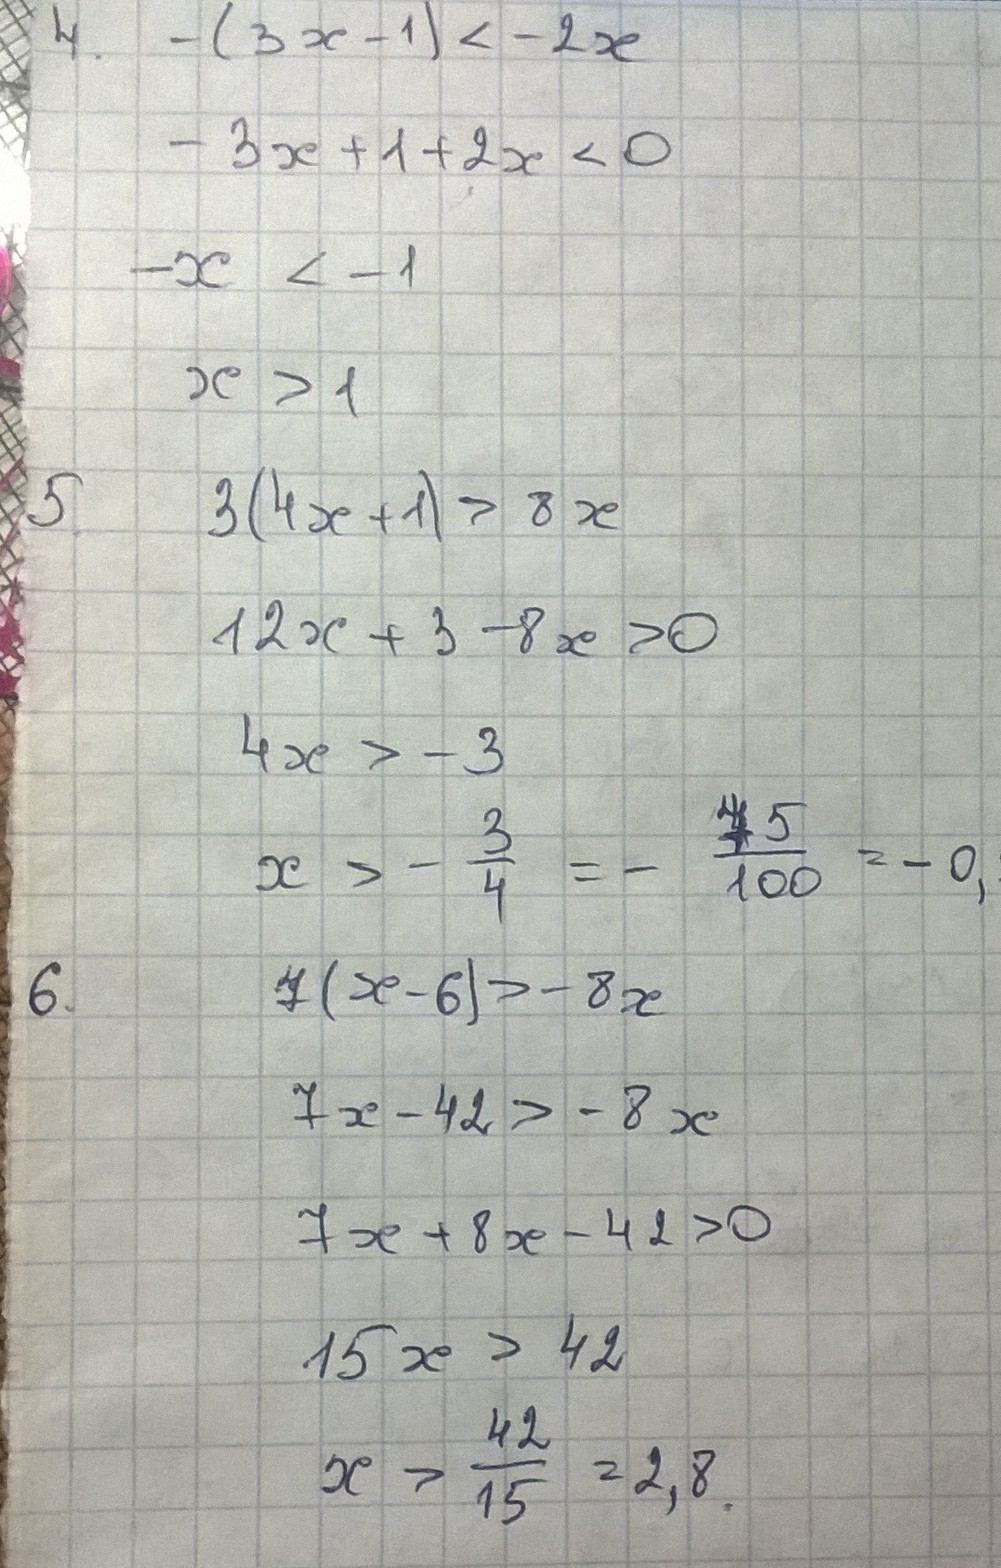 4. -(3x-1) < -2x
-3x+1+2x < 0
-x < -1
x > 1
5 3(4x+1) > 8x
12x + 3 - 8x > 0
4x > -3
x > - 3/4 = - 75/100 = -0,
6. 7(x-6) > -8x
7x - 42 > -8x
7x + 8x - 42 > 0
15x > 42
x > 42/15 = 2,8.